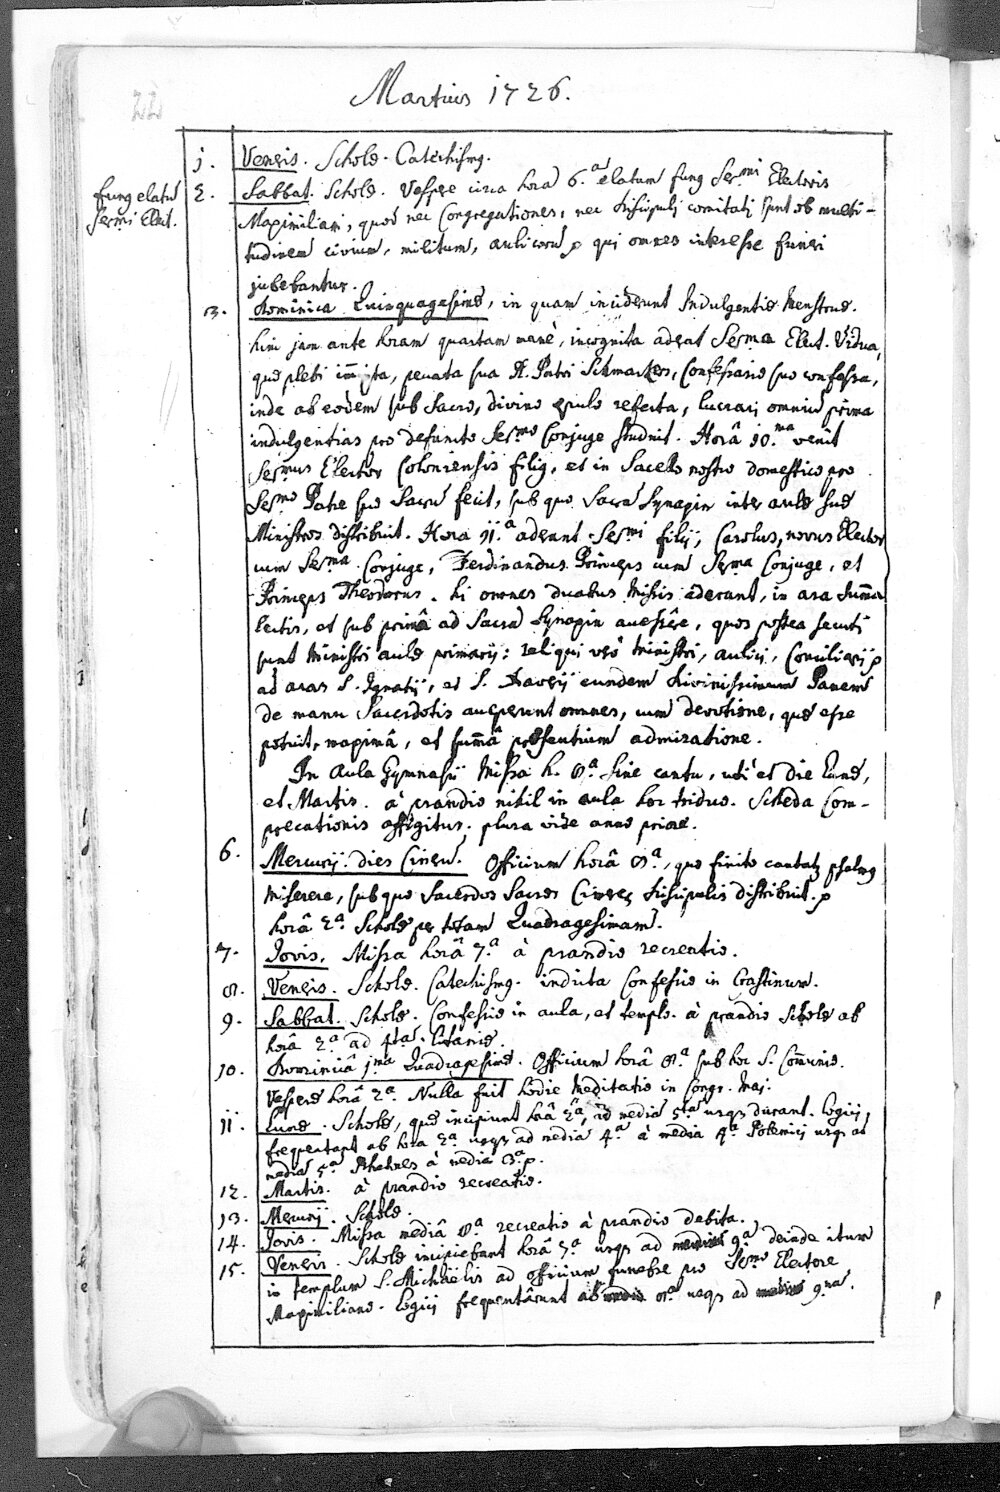 22
Martius 1726.
1. Veneris. Scholæ. Catechismq.
funq elatū
Sermi Elect.
2. Sabbat. Scholæ. Vespere circa horā 6.ᵃ elatum funq Serᵐⁱ Electoris
Maximiliani, quod nec Congregationes, nec discipuli comitati sunt ob multi-
tudinem civium, militum, aulicorū p qui omnes interesse funeri
jubebantur.
3. Dominica Quinquagesimæ, in quam inciderunt Indulgentiæ Menstruæ.
hinc jam ante horam quartam manè, incognita aderat Serma Elect. Vidua,
quæ plebi im̄ixta, peccata sua R. Patri Schmackers, Confessario suo confessa,
inde ab eodem sub Sacro, divino epulo refecta, lucrari omniū prima
indulgentias pro defuncto Serᵐᵒ Conjuge studuit. Horâ 10.ᵐᵃ venit
Serᵐus Elector Coloniensis filiq, et in Sacello nostro domestico pro
Serᵐᵒ Patre suo Sacrū fecit, sub quo Sacrā Synaxin inter aulæ suæ
Ministros distribuit. Hora 11.ᵃ aderant Serᵐⁱ filij, Carolus, novus Elector
cum Serᵐᵃ Conjuge, Ferdinandus Princeps cum Serᵐᵃ Conjuge, et
Princeps Theodorus. hi omnes duabus Missis aderant, in ara sum̄a
lectis, et sub primâ ad Sacrā Synaxin accessêre, quos postea secuti
sunt Ministri aulæ primarij: reliqui verò ministri, aulici, Consiliarij p
ad aras S. Ignatij, et S. Xaverij eundem divinissimum Panem
de manu Sacerdotis acceperunt omnes, cum devotione, quæ esse
potuit, maximâ, et sum̄â præsentium admiratione.
In Aula Gymnasij Missa h. 8.ᵃ sine cantu, uti et die Lunæ,
et Martis. à prandio nihil in aula hoc triduo. Scheda Com-
precationis affigitur. plura vide anno priore.
6. Mercurij. dies Cinerū. Officium horâ 8.ᵃ, quo finito cantatq psalmq
Miserere, sub quo Sacerdos Sacros Cineres discipulis distribuit. p
horâ 2.ᵃ Scholæ per totam Quadragesimam.
7. Jovis. Missa horâ 7.ᵃ à prandio recreatio.
8. Veneris. Scholæ. Catechismq. indicta Confessio in Crastinum.
9. Sabbat. Scholæ. Confessio in aula, et templo. à prandio Scholæ ab
horâ 2.ᵃ ad 4tᵃ. Litaniæ.
10. Dominicâ 1ᵐᵃ Quadragesimæ. Officium horâ 8.ᵃ sub hoc S. Com̄unio.
Vesperæ horâ 2ᵃ. Nulla fuit hodie Meditatio in Congr. Maj.
11. Lunæ. Scholæ, quæ incipiunt horâ 2ᵃ, ad media 5ᵗᵃ usqz durant. Logici
frequentant ab hora 2.ᵃ usqz ad media 4.ᵃ à media 4.ᵃ Polemici usqz ad
media 5.ᵃ Rhetores à media 3.ᵃ p.
12. Martis. à prandio recreatio.
13. Mercurij. Scholæ.
14. Jovis. Missa mediâ 8.ᵃ recreatio à prandio debita.
15. Veneris. Scholæ incipiebant horâ 7.ᵃ usqz ad 9ᵃ, deinde itum
in templum S. Michaëlis ad officium funebre pro Serᵐᵒ Electore
Maximiliano. Logici frequentârunt ab 8.ᵃ usqz ad 9.ⁿᵃ.